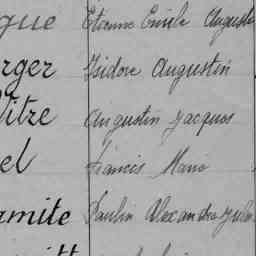 gue Etienne Emile Auguste
rger Isidore Augustin
Vitre Augustin Jacques
el Francis Marie
rmite Paulin Alexandre Jules